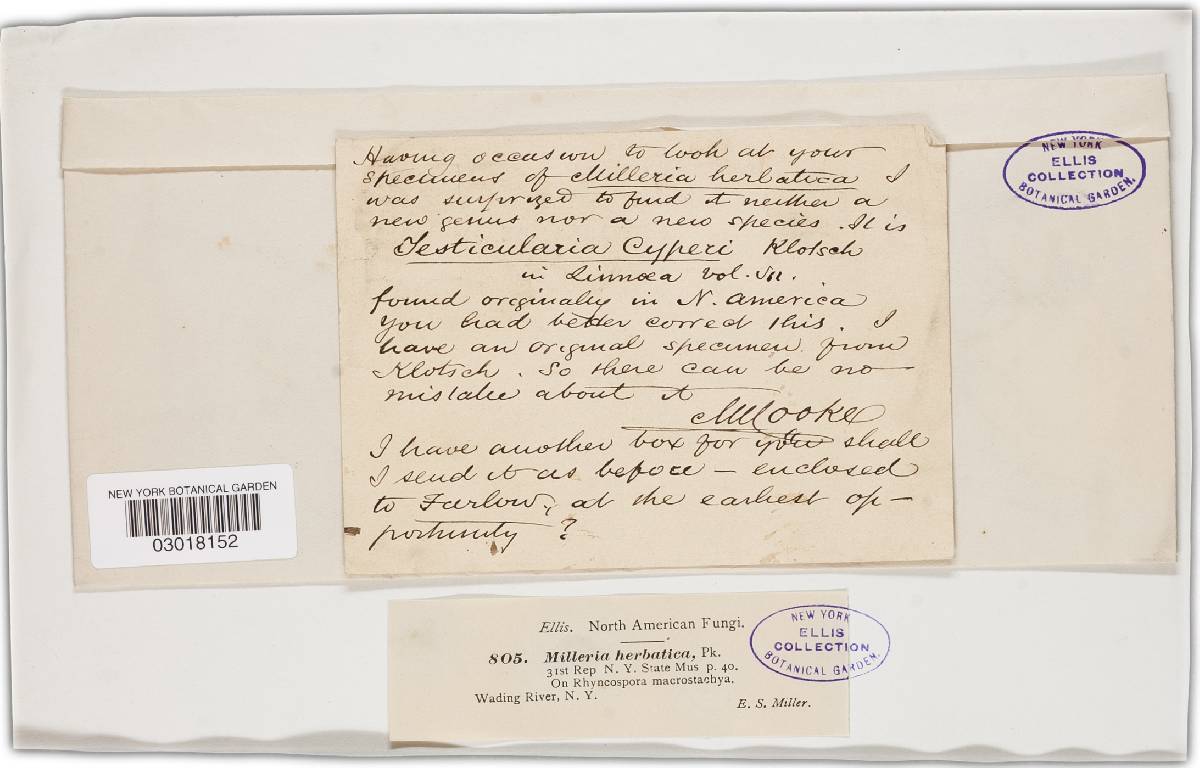 Having occasion to look at your
specimens of Milleria herbatica I
was surprized to find it neither a
new genus nor a new species. It is
Testicularia Cyperi Klotsch
in Linnœa vol.
found originally in N. America
You had better correct this. I
have an original specimen from
Klotsch. So there can be no
mistake about it
MCCooke
I have another box for you shall
I send it as before - enclosed
to Farlow, at the earliest op-
portunity ?
NEW YORK
ELLIS
COLLECTION
BOTANICAL GARDEN.
NEW YORK BOTANICAL GARDEN
03018152
Ellis. North American Fungi.
805. Milleria herbatica, Pk.
31st Rep N. Y. State Mus p. 40.
On Rhyncospora macrostachya.
Wading River, N. Y.
E. S. Miller.
NEW YORK
ELLIS
COLLECTION
BOTANICAL GARDEN.